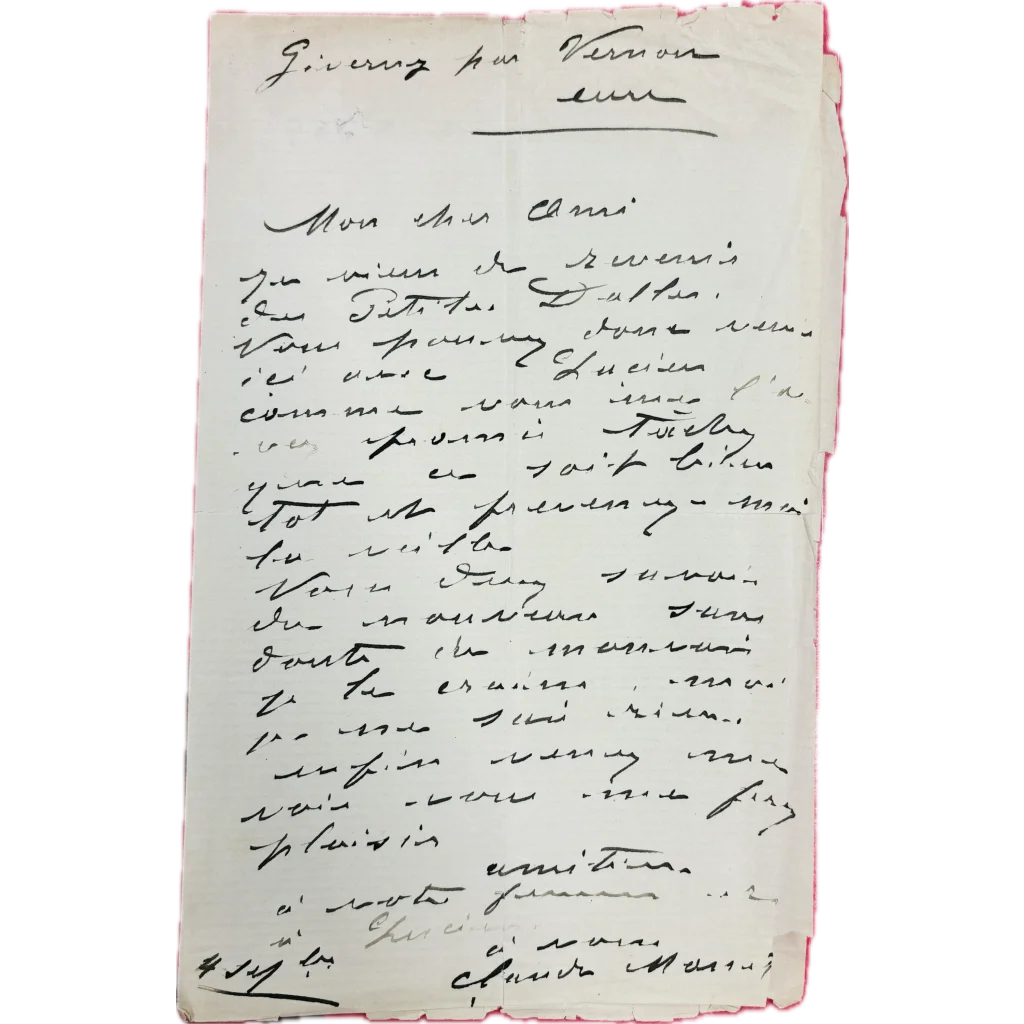 Giverny par Vernon
eure
Mon cher Ami
Je viens de revenir
des Petites Dalles.
Vous pouvez donc venir
ici avec Lucien
comme vous me l'a-
vez promis tâchez
que ce soit bien
tot et prevenez-moi
la veille
Vous devez savoir
du nouveau sans
doute du mauvais
je le crains, moi
je ne sais rien.
enfin venez me
voir vous me ferez
plaisir
amitiés
à votre femme
à Lucien
à vous
4 sepbre Claude Monet